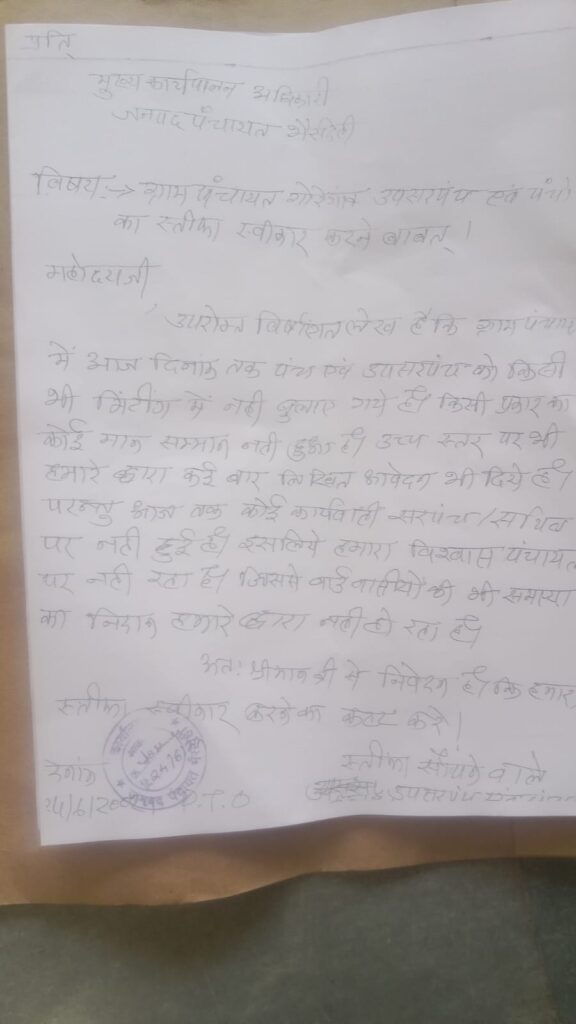 प्रति,
मुख्य कार्यपालन अधिकारी
जनपद पंचायत भैंसदेही
विषय :→ ग्राम पंचायत गोरेगांव उपसरपंच एवं पंचो
का स्तीफा स्वीकार करने बाबत् ।
महोदय जी
उपरोक्त विषयांतर्गत लेख है कि ग्राम पंचायत
में आज दिनांक तक पंच एवं उपसरपंच को किसी
भी मिटींग में नही बुलाए गये है। किसी प्रकार का
कोई मान सम्मान नही हुआ है। उच्च स्तर पर भी
हमारे द्वारा कई बार लिखित आवेदन भी दिये है।
परन्तु आज तक कोई कार्यवाही सरपंच/सचिव
पर नही हुई है। इसलिये हमारा विश्वास पंचायत
पर नही रहा है। जिससे वार्ड वासीयों की भी समस्या
का निदान हमारे द्वारा नही हो रहा है।
अतः श्रीमान जी से निवेदन है कि हमारा
स्तीफा स्वीकार करने का कष्ट करे।
स्तीफा सौंपने वाले
उपसरपंच
P.T.O